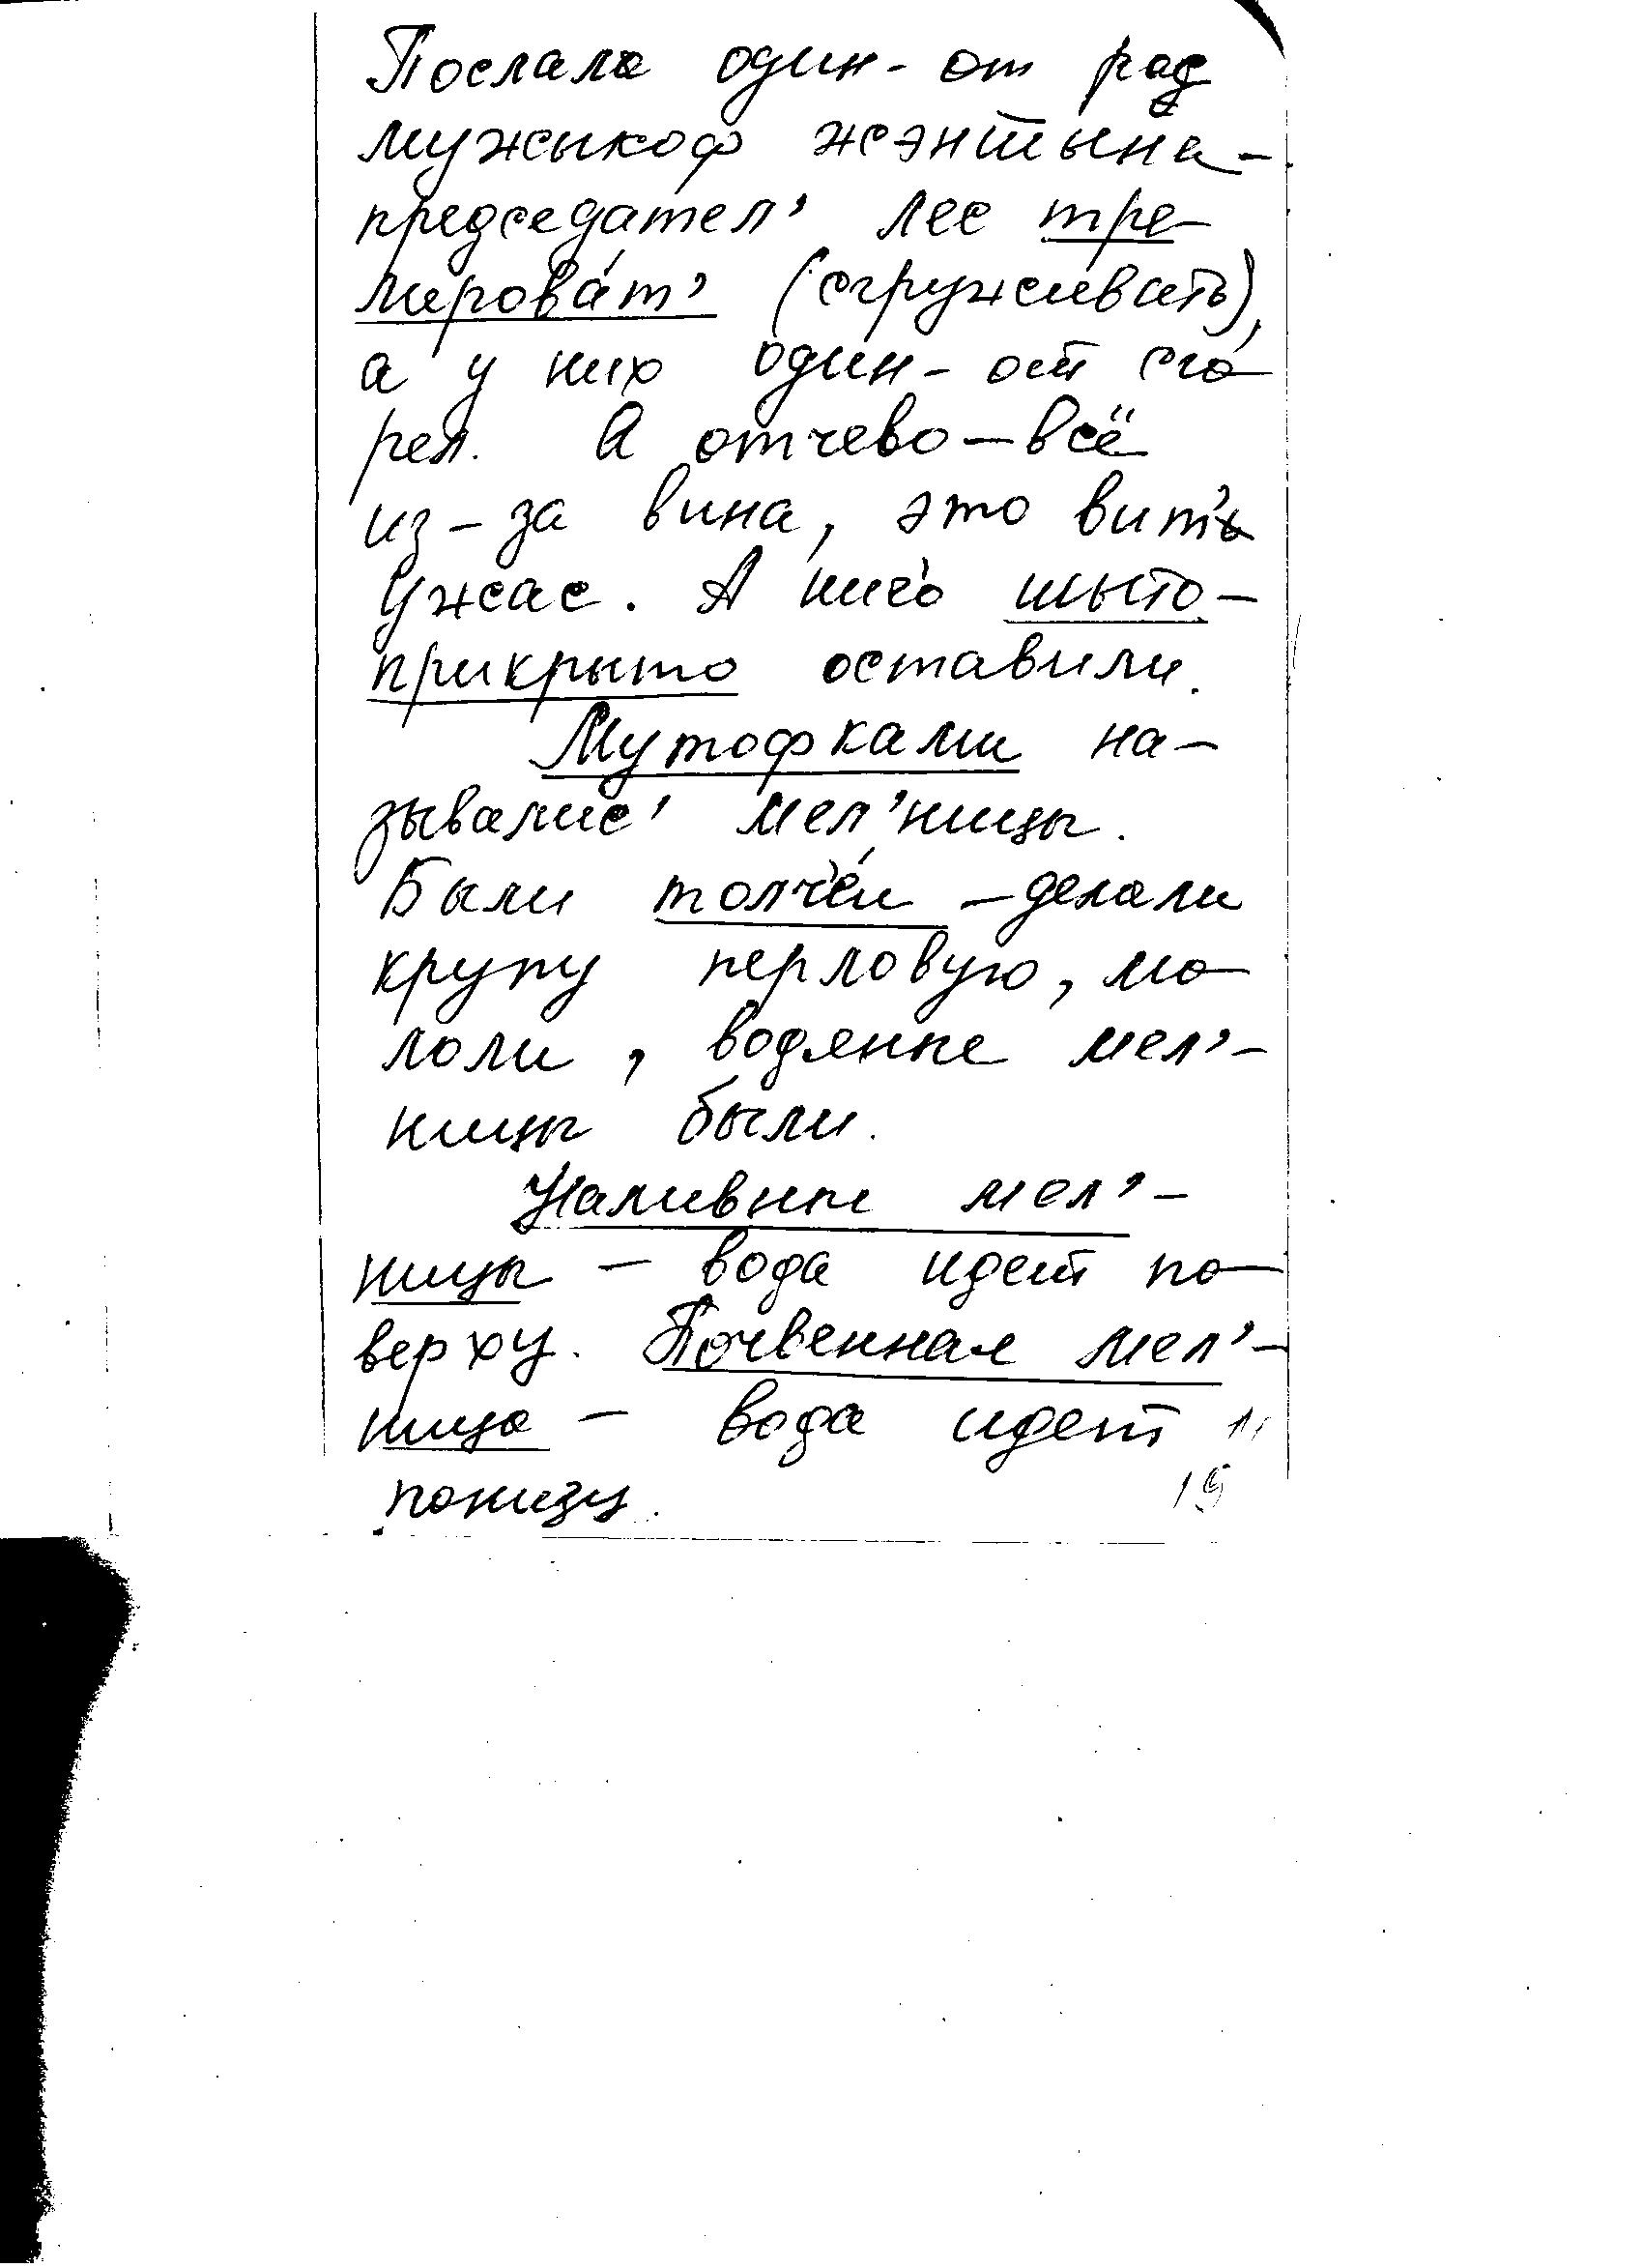 Послала один-от рад
мужыкоф жэнтына-
председател' лес тре-
лироват' (сгруживать),
а у них один-от сго-
рел. А отчево – всё
из-за вина, это вит'
ужас. А ничо шыто-
прикрыто оставили.
Мутофками на-
зывалис' мел'ницы.
Были толчеи – делали
крупу перловую, мо-
лоли, водяные мел'-
ницы были.
Наливные мел'-
ницы – вода идет по-
верху. Почвенная мел'-
ница – вода идет
понизу.